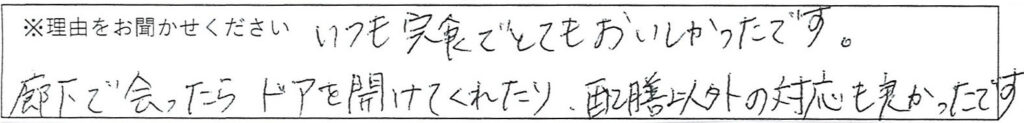 ※理由をお聞かせください いつも完食でとてもおいしかったです。
廊下で会ったら ドアを開けてくれたり、配膳以外の対応も良かったです